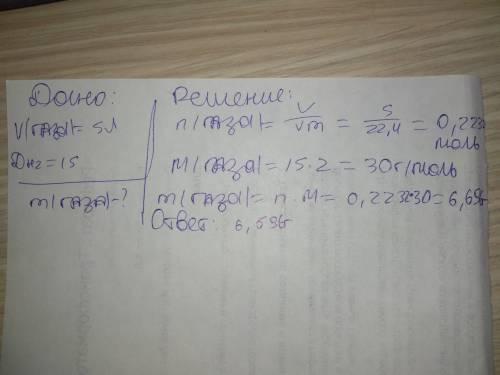 Дано:
V(газа)= 5л
Dн2=15
m(газа)-?
Решение:
n(газа)= V/Vm = 5/22,4 = 0,223
моль
M(газа)=15·2=30г/моль
m(газа)= n·M=0,223·30=6,69г
Ответ: 6,69г